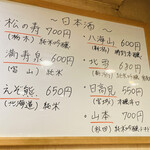 ~日本酒~
松の寿 700円
(栃木) 純米吟醸
満寿泉 600円
(富山) 純米
えぞ熊. 650円
(北海道) 純米
・八海山 600円
(新潟) 特別本醸造
・北雪 630円
(新潟) 純米
・日高見 550円
(宮城) 本醸辛口
・山本 700円
(秋田) 純米吟醸